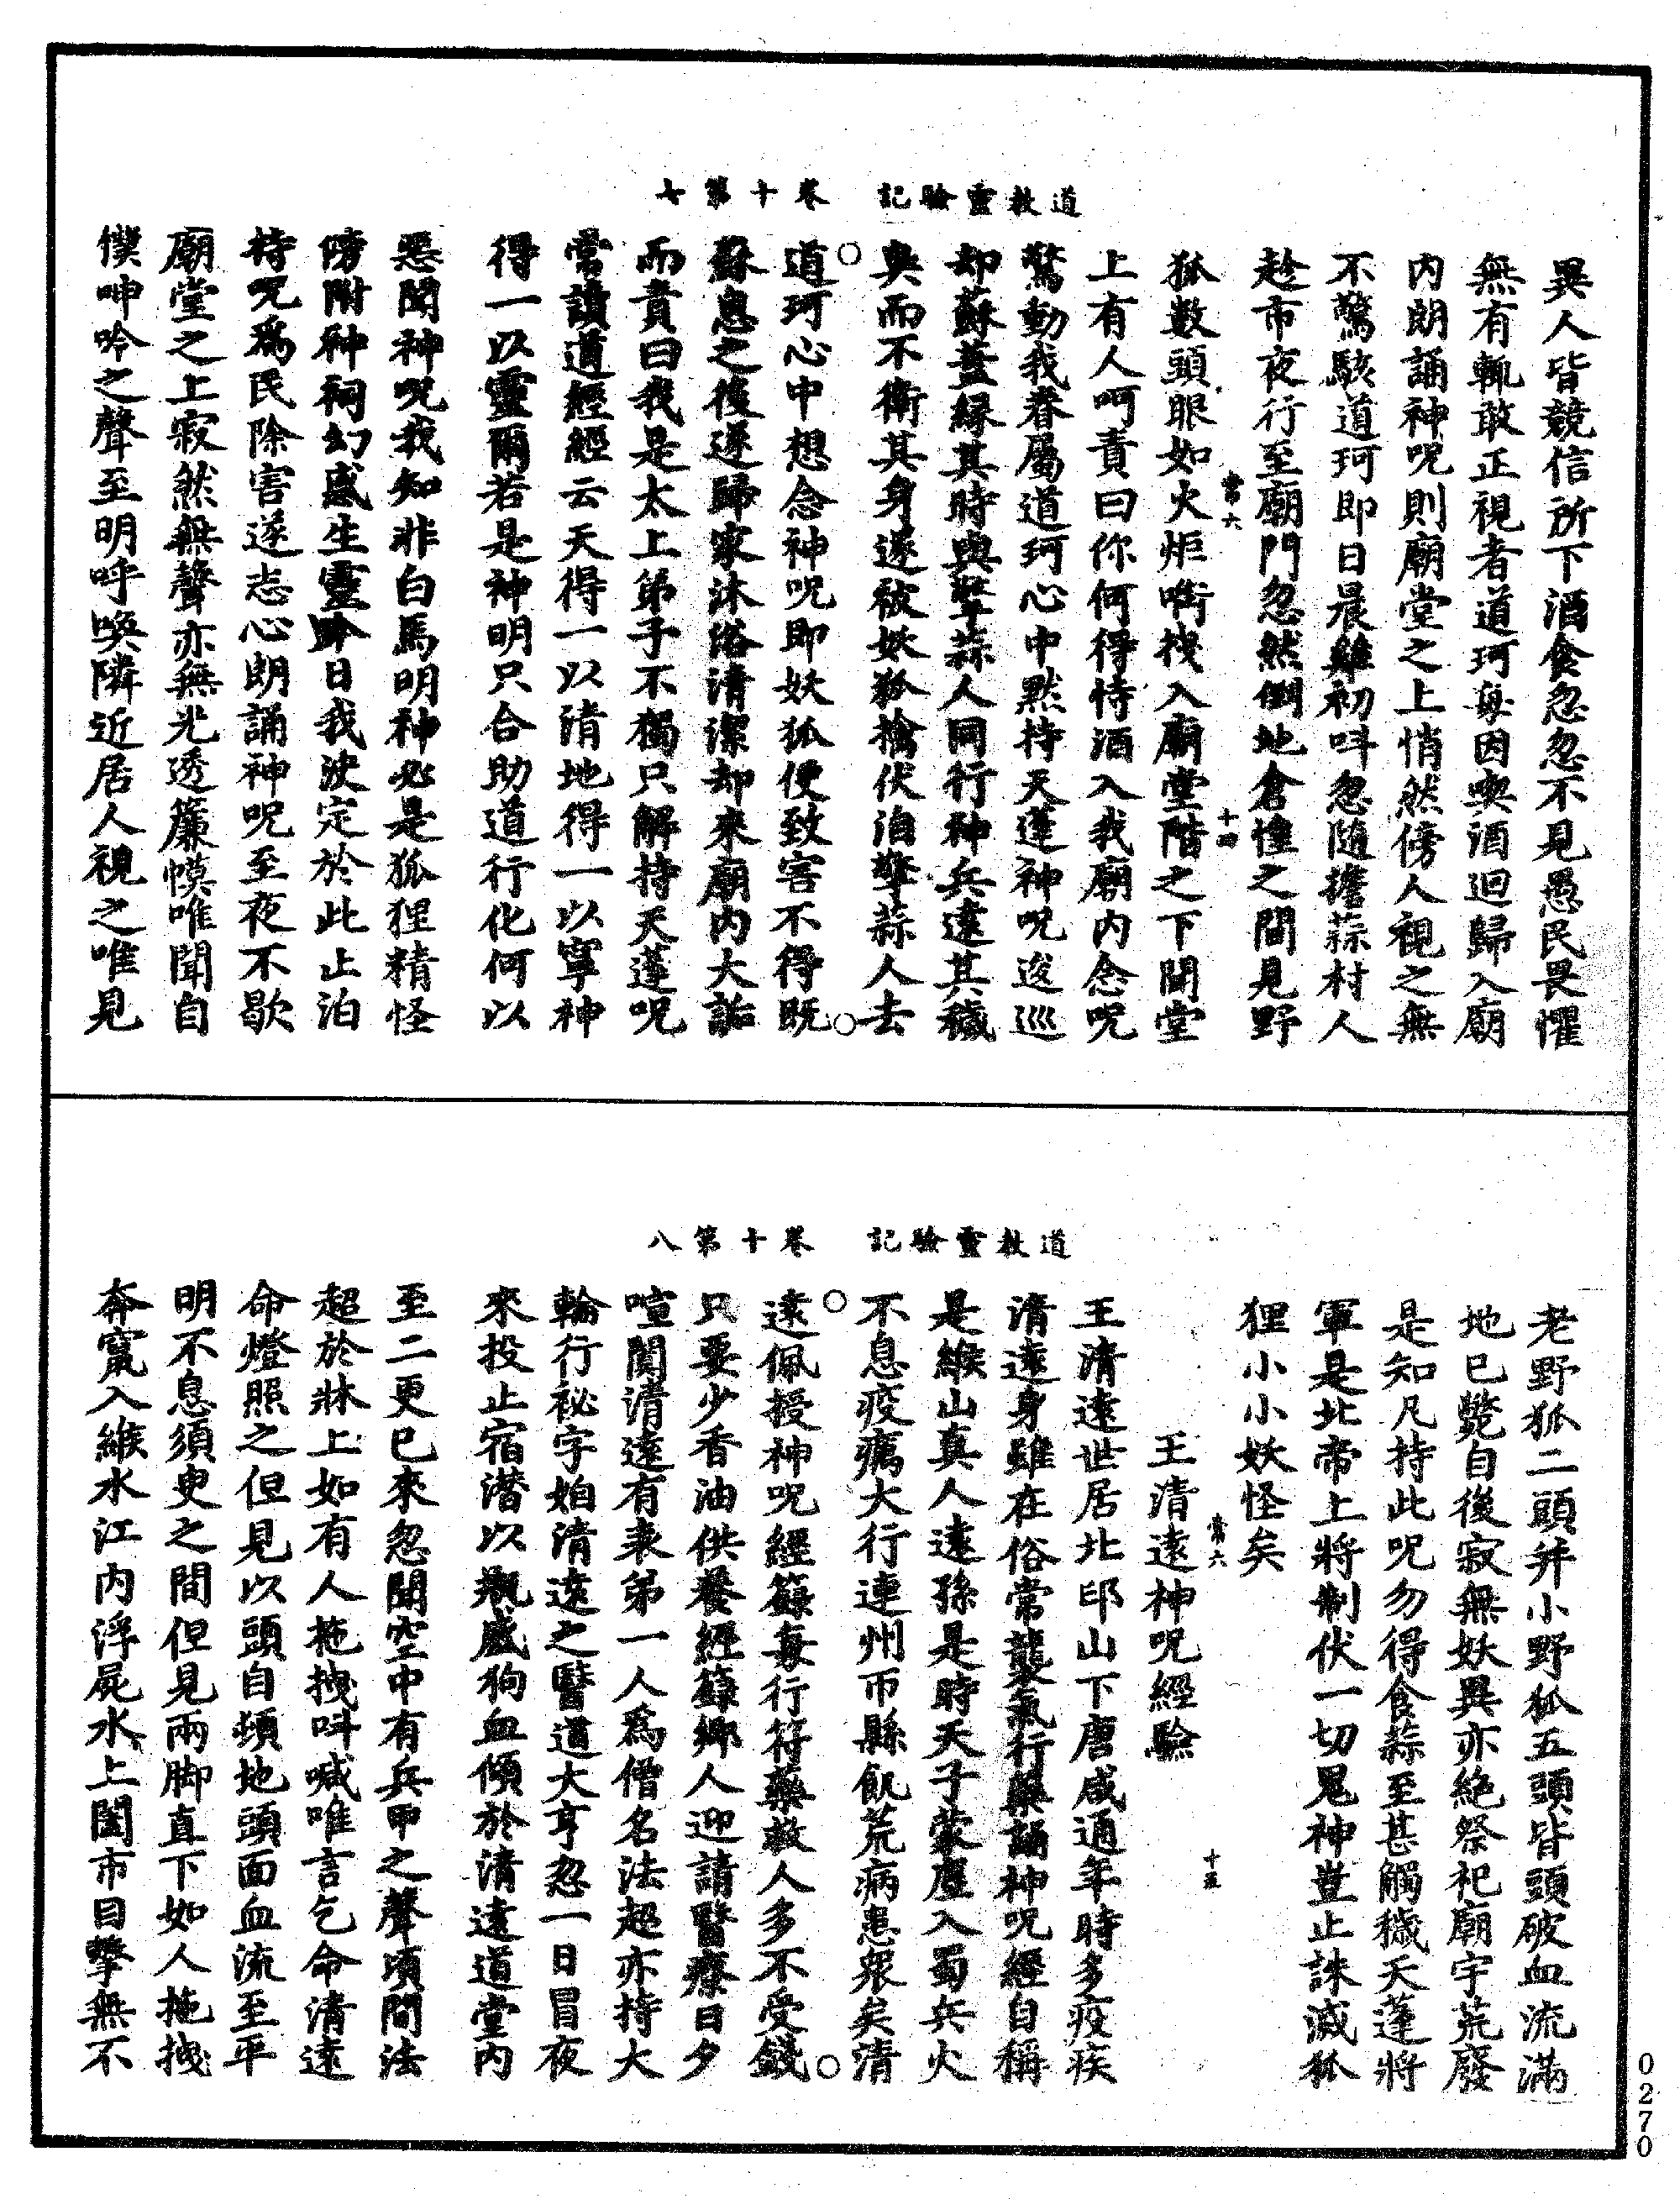 道教靈驗記　卷十第七
異人皆競信所下酒食忽忽不見愚民畏懼
無有輒敢正視者道珂每因喫酒迴歸入廟
内朗誦神呪則廟堂之上悄然傍人視之無
不驚駭道珂即日晨雞初叫忽隨擔蒜村人
趁市夜行至廟門忽然倒地倉惶之間見野
常六　十四
狐數頭眼如火炬㘅拽入廟堂階之下聞堂
上有人呵責曰你何得恃酒入我廟内念呪
驚動我眷屬道珂心中黙持天蓬神呪逡巡
却蘇蓋緣其時與擎蒜人同行神兵遠其穢
臭而不衛其身遂被妖狐擒伏洎擎蒜人去
道珂心中想念神呪即妖狐便致害不得既
蘇息之後遂歸家沐浴清潔却來廟内大詬
而責曰我是太上弟子不獨只解持天蓬呪
常讀道經經云天得一以清地得一以寧神
得一以靈爾若是神明只合助道行化何以
惡聞神呪我知非白馬明神必是狐狸精怪
傍附神祠幻惑生靈今日我決定於此止泊
持呪爲民除害遂志心朗誦神呪至夜不歇
廟堂之上寂然無聲亦無光透簾幙唯聞自
僕呻吟之聲至明呼喚隣近居人視之唯見
道教靈驗記　卷十第八
老野狐二頭并小野狐五頭皆頭破血流滿
地已斃自後寂無妖異亦絶祭祀廟宇荒廢
是知凡持此呪勿得食蒜至甚觸穢天蓬將
軍是北帝上將制伏一切鬼神豈止誅滅狐
狸小小妖怪矣
常六　十五
王清遠神呪經驗
王清遠世居北邙山下唐咸通年時多疫疾
清遠身雖在俗常襲氣行藥誦神呪經自稱
是緱山真人遠孫是時天子蒙塵入蜀兵火
不息疫癘大行連州帀縣飢荒病患衆矣清
遠佩授神呪經籙每行符藥救人多不受錢
只要少香油供養經籙鄉人迎請醫療日夕
喧闐清遠有表弟一人爲僧名法超亦持大
輪行祕字妬清遠之醫道大亨忽一日冒夜
來投止宿潜以瓶盛狗血傾於清遠道堂内
至二更已來忽聞空中有兵甲之聲頃間法
超於牀上如有人拖拽叫喊唯言乞命清遠
命燈照之但見以頭自頓地頭面血流至平
明不息須臾之間但見兩脚直下如人拖拽
奔竄入緱水江内浮屍水上闔市目擊無不
0270